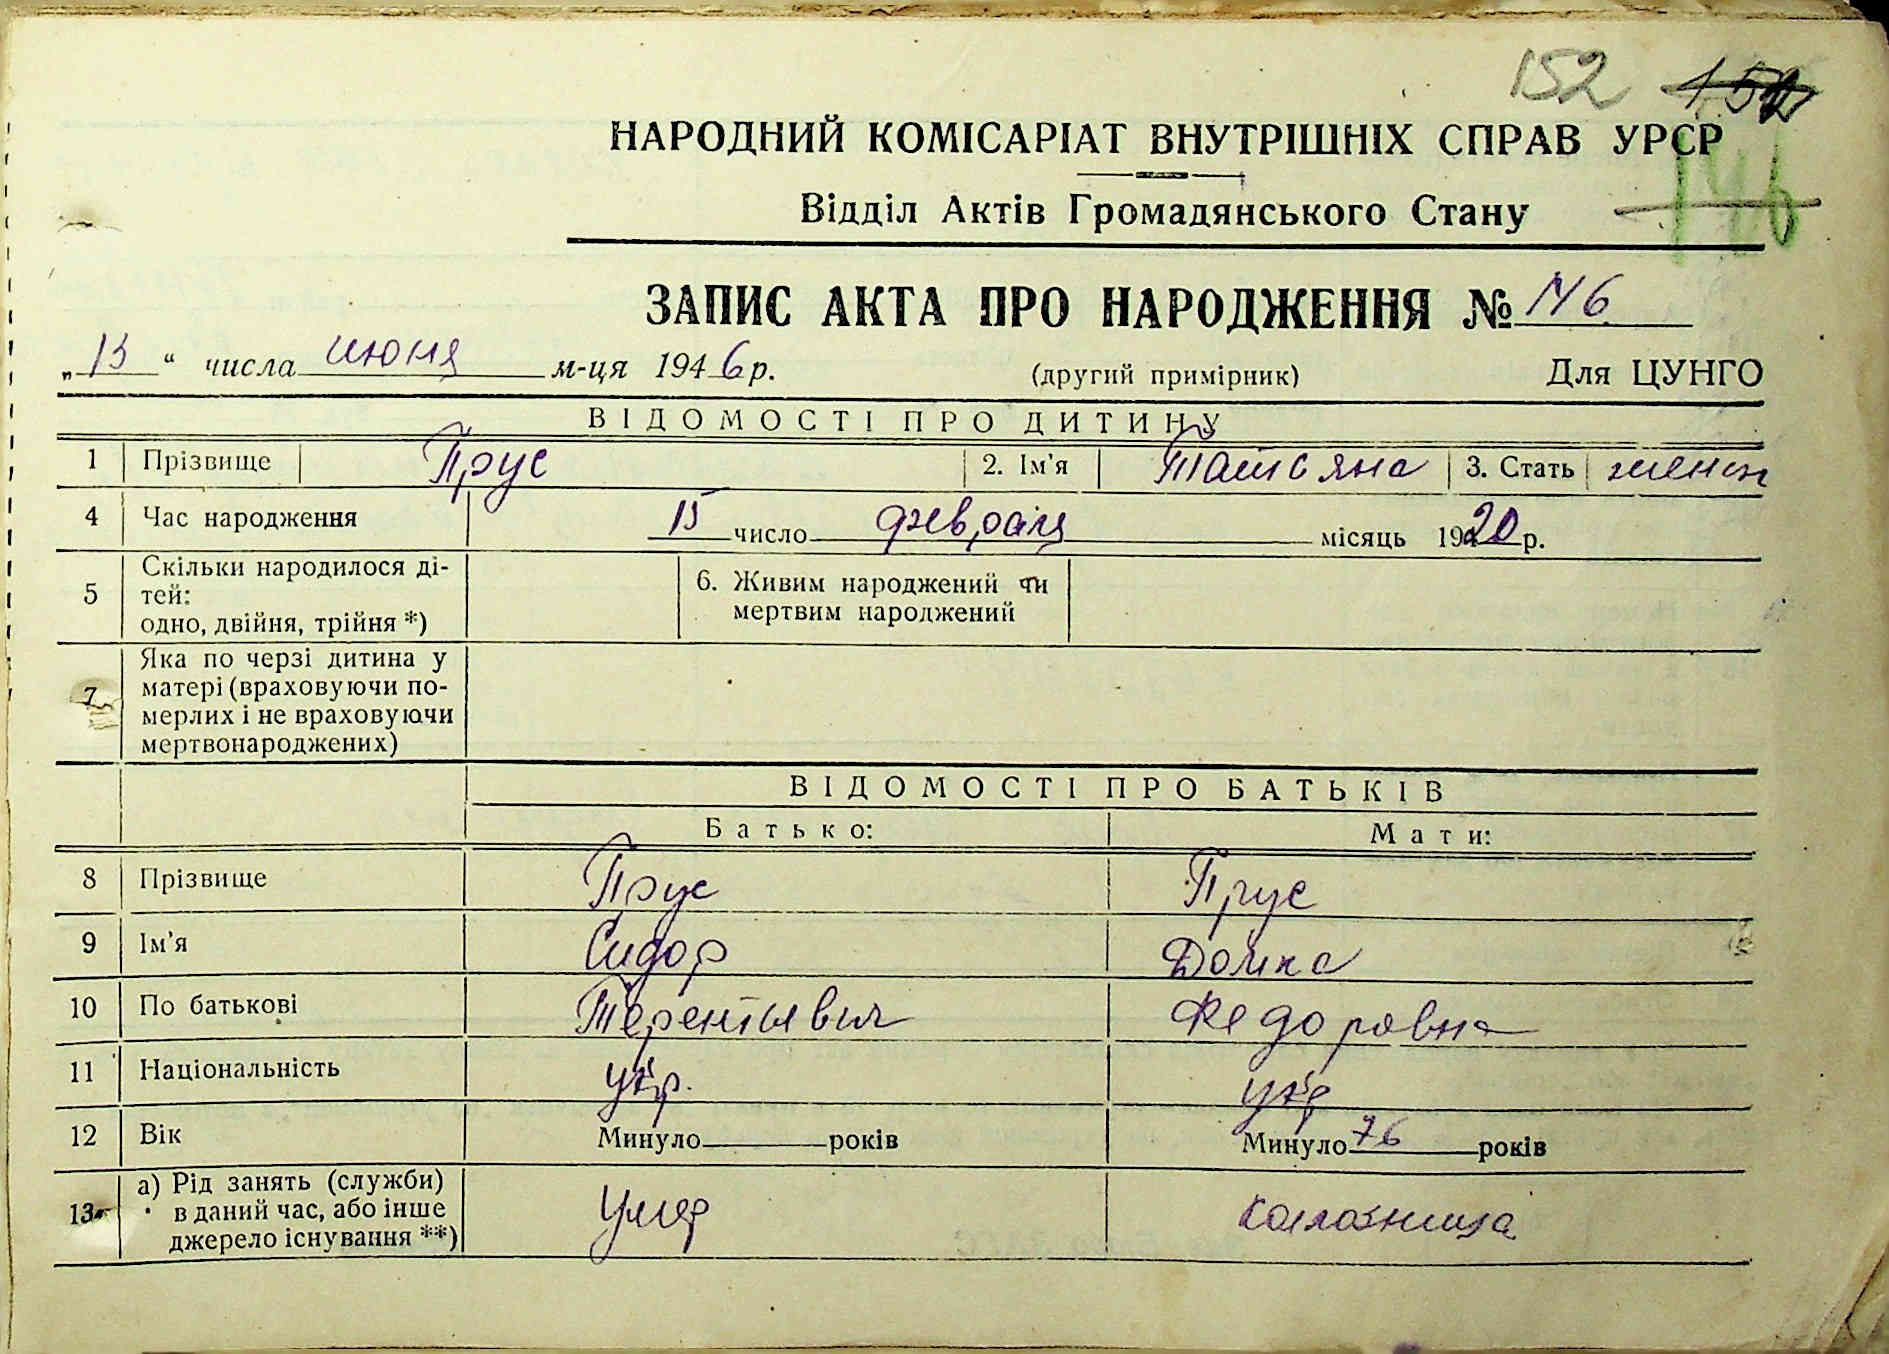 152
НАРОДНИЙ КОМІСАРІАТ ВНУТРІШНІХ СПРАВ УРСР
146
Відділ Актів Громадянського Стану
ЗАПИС АКТА ПРО НАРОДЖЕННЯ № 146
„13“ числа июня м-ця 1946 р. (другий примірник) Для ЦУНГО
ВІДОМОСТІ ПРО ДИТИНУ
1 Прізвище Прус 2. Ім'я Татьяна 3. Стать женск
4 Час народження 15 число февраля місяць 1920 р.
5 Скільки народилося ді-
тей:
одно, двійня, трійня *)
6. Живим народжений чи
мертвим народжений
7 Яка по черзі дитина у
матері (враховуючи по-
мерлих і не враховуючи
мертвонароджених)
ВІДОМОСТІ ПРО БАТЬКІВ
Батько: Мати:
8 Прізвище Прус Прус
9 Ім'я Сидор Домка
10 По батькові Терентьевич Федоровна
11 Національність укр. укр
12 Вік Минуло років Минуло 76 років
13 а) Рід занять (служби)
в даний час, або інше
джерело існування **)
Умер колхозница